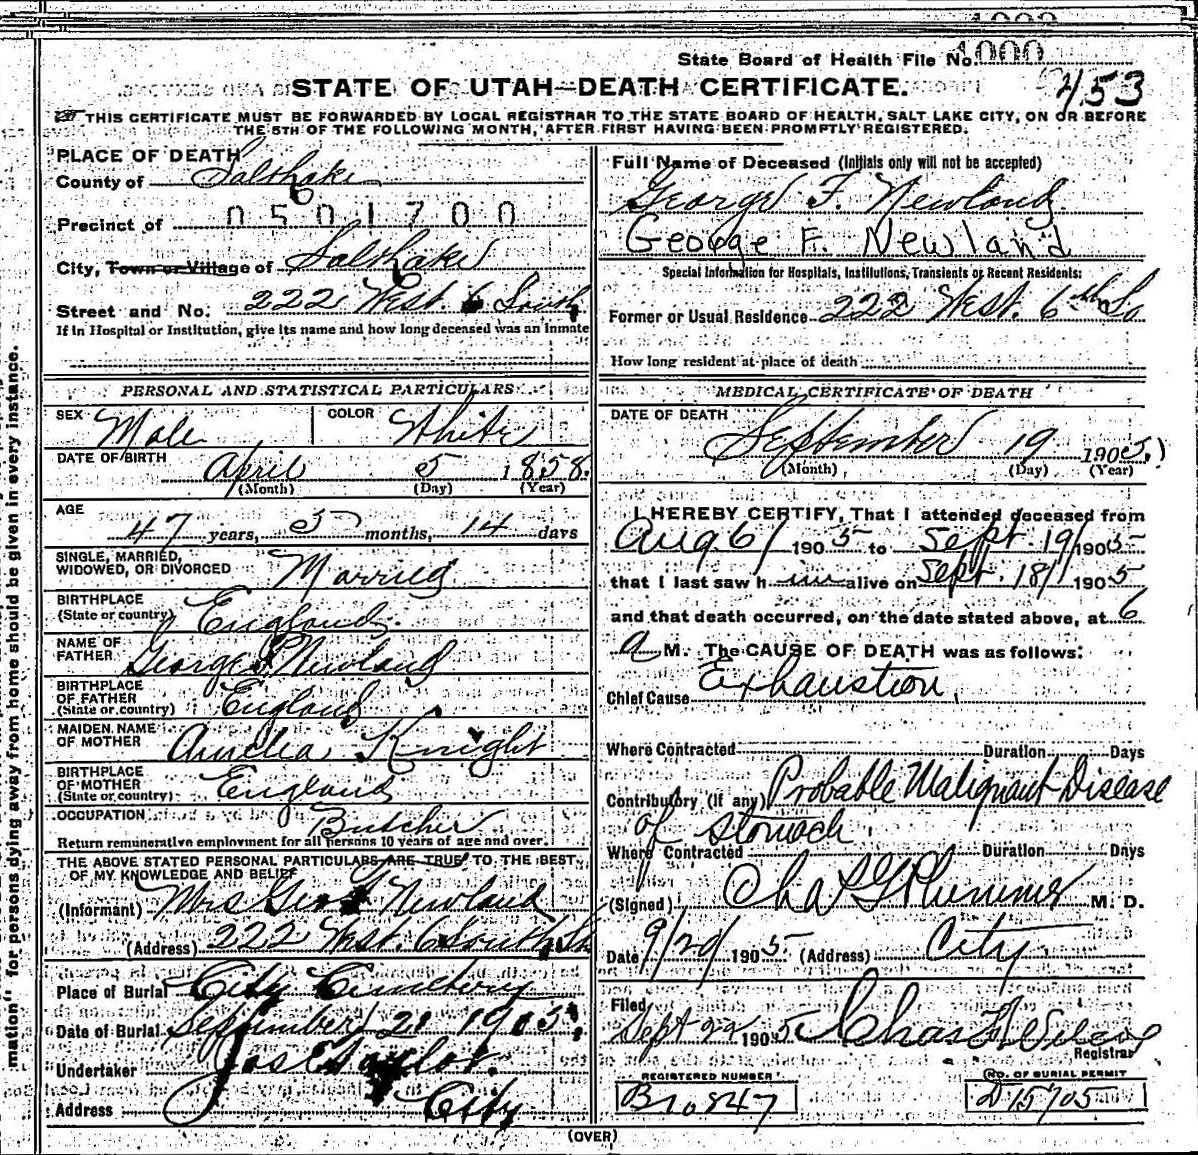 State Board of Health File No. 1000
453
STATE OF UTAH—DEATH CERTIFICATE.
THIS CERTIFICATE MUST BE FORWARDED BY LOCAL REGISTRAR TO THE STATE BOARD OF HEALTH, SALT LAKE CITY, ON OR BEFORE
THE 5TH OF THE FOLLOWING MONTH, AFTER FIRST HAVING BEEN PROMPTLY REGISTERED.
PLACE OF DEATH
County of Salt Lake
Precinct of 0501700
City, Town or Village of Salt Lake
Street and No. 222 West. 6 South
If in Hospital or Institution, give its name and how long deceased was an inmate
Full Name of Deceased (Initials only will not be accepted)
George F. Newland
George F. Newland
Special Information for Hospitals, Institutions, Transients or Recent Residents:
Former or Usual Residence 222 West. 6th So
How long resident at place of death
PERSONAL AND STATISTICAL PARTICULARS
SEX Male COLOR White
DATE OF BIRTH April 5 1858.
(Month) (Day) (Year)
AGE
47 years, 5 months, 14 days
SINGLE, MARRIED,
WIDOWED, OR DIVORCED Married
BIRTHPLACE
(State or country) England.
NAME OF
FATHER George Newland
BIRTHPLACE
OF FATHER
(State or country) England
MAIDEN NAME
OF MOTHER Amelia Knight
BIRTHPLACE
OF MOTHER
(State or country) England
OCCUPATION Butcher
Return remunerative employment for all persons 10 years of age and over.
THE ABOVE STATED PERSONAL PARTICULARS ARE TRUE TO THE BEST
OF MY KNOWLEDGE AND BELIEF
(Informant) Mrs Geo F Newland
(Address) 222 West. 6 South St
Place of Burial City Cemetery
Date of Burial September 21 1905.
Undertaker Jos E Taylor.
Address City
MEDICAL CERTIFICATE OF DEATH
DATE OF DEATH
September 19 1905.
(Month) (Day) (Year)
I HEREBY CERTIFY, That I attended deceased from
Aug. 6/ 1905 to Sept. 19/ 1905
that I last saw him alive on Sept. 18/ 1905
and that death occurred, on the date stated above, at 6
a M. The CAUSE OF DEATH was as follows:
Chief Cause Exhaustion.
Where Contracted Duration Days
Contributory (if any) Probable Malignant Disease
of Stomach.
Where Contracted Duration Days
(Signed) Chas G Plummer M. D.
Date 9/20/ 1905 (Address) City
Filed
Sept 22 1905
Registrar
REGISTERED NUMBER
B10847
NO. OF BURIAL PERMIT
D15705
(OVER)
mation" for persons dying away from home should be given in every instance.